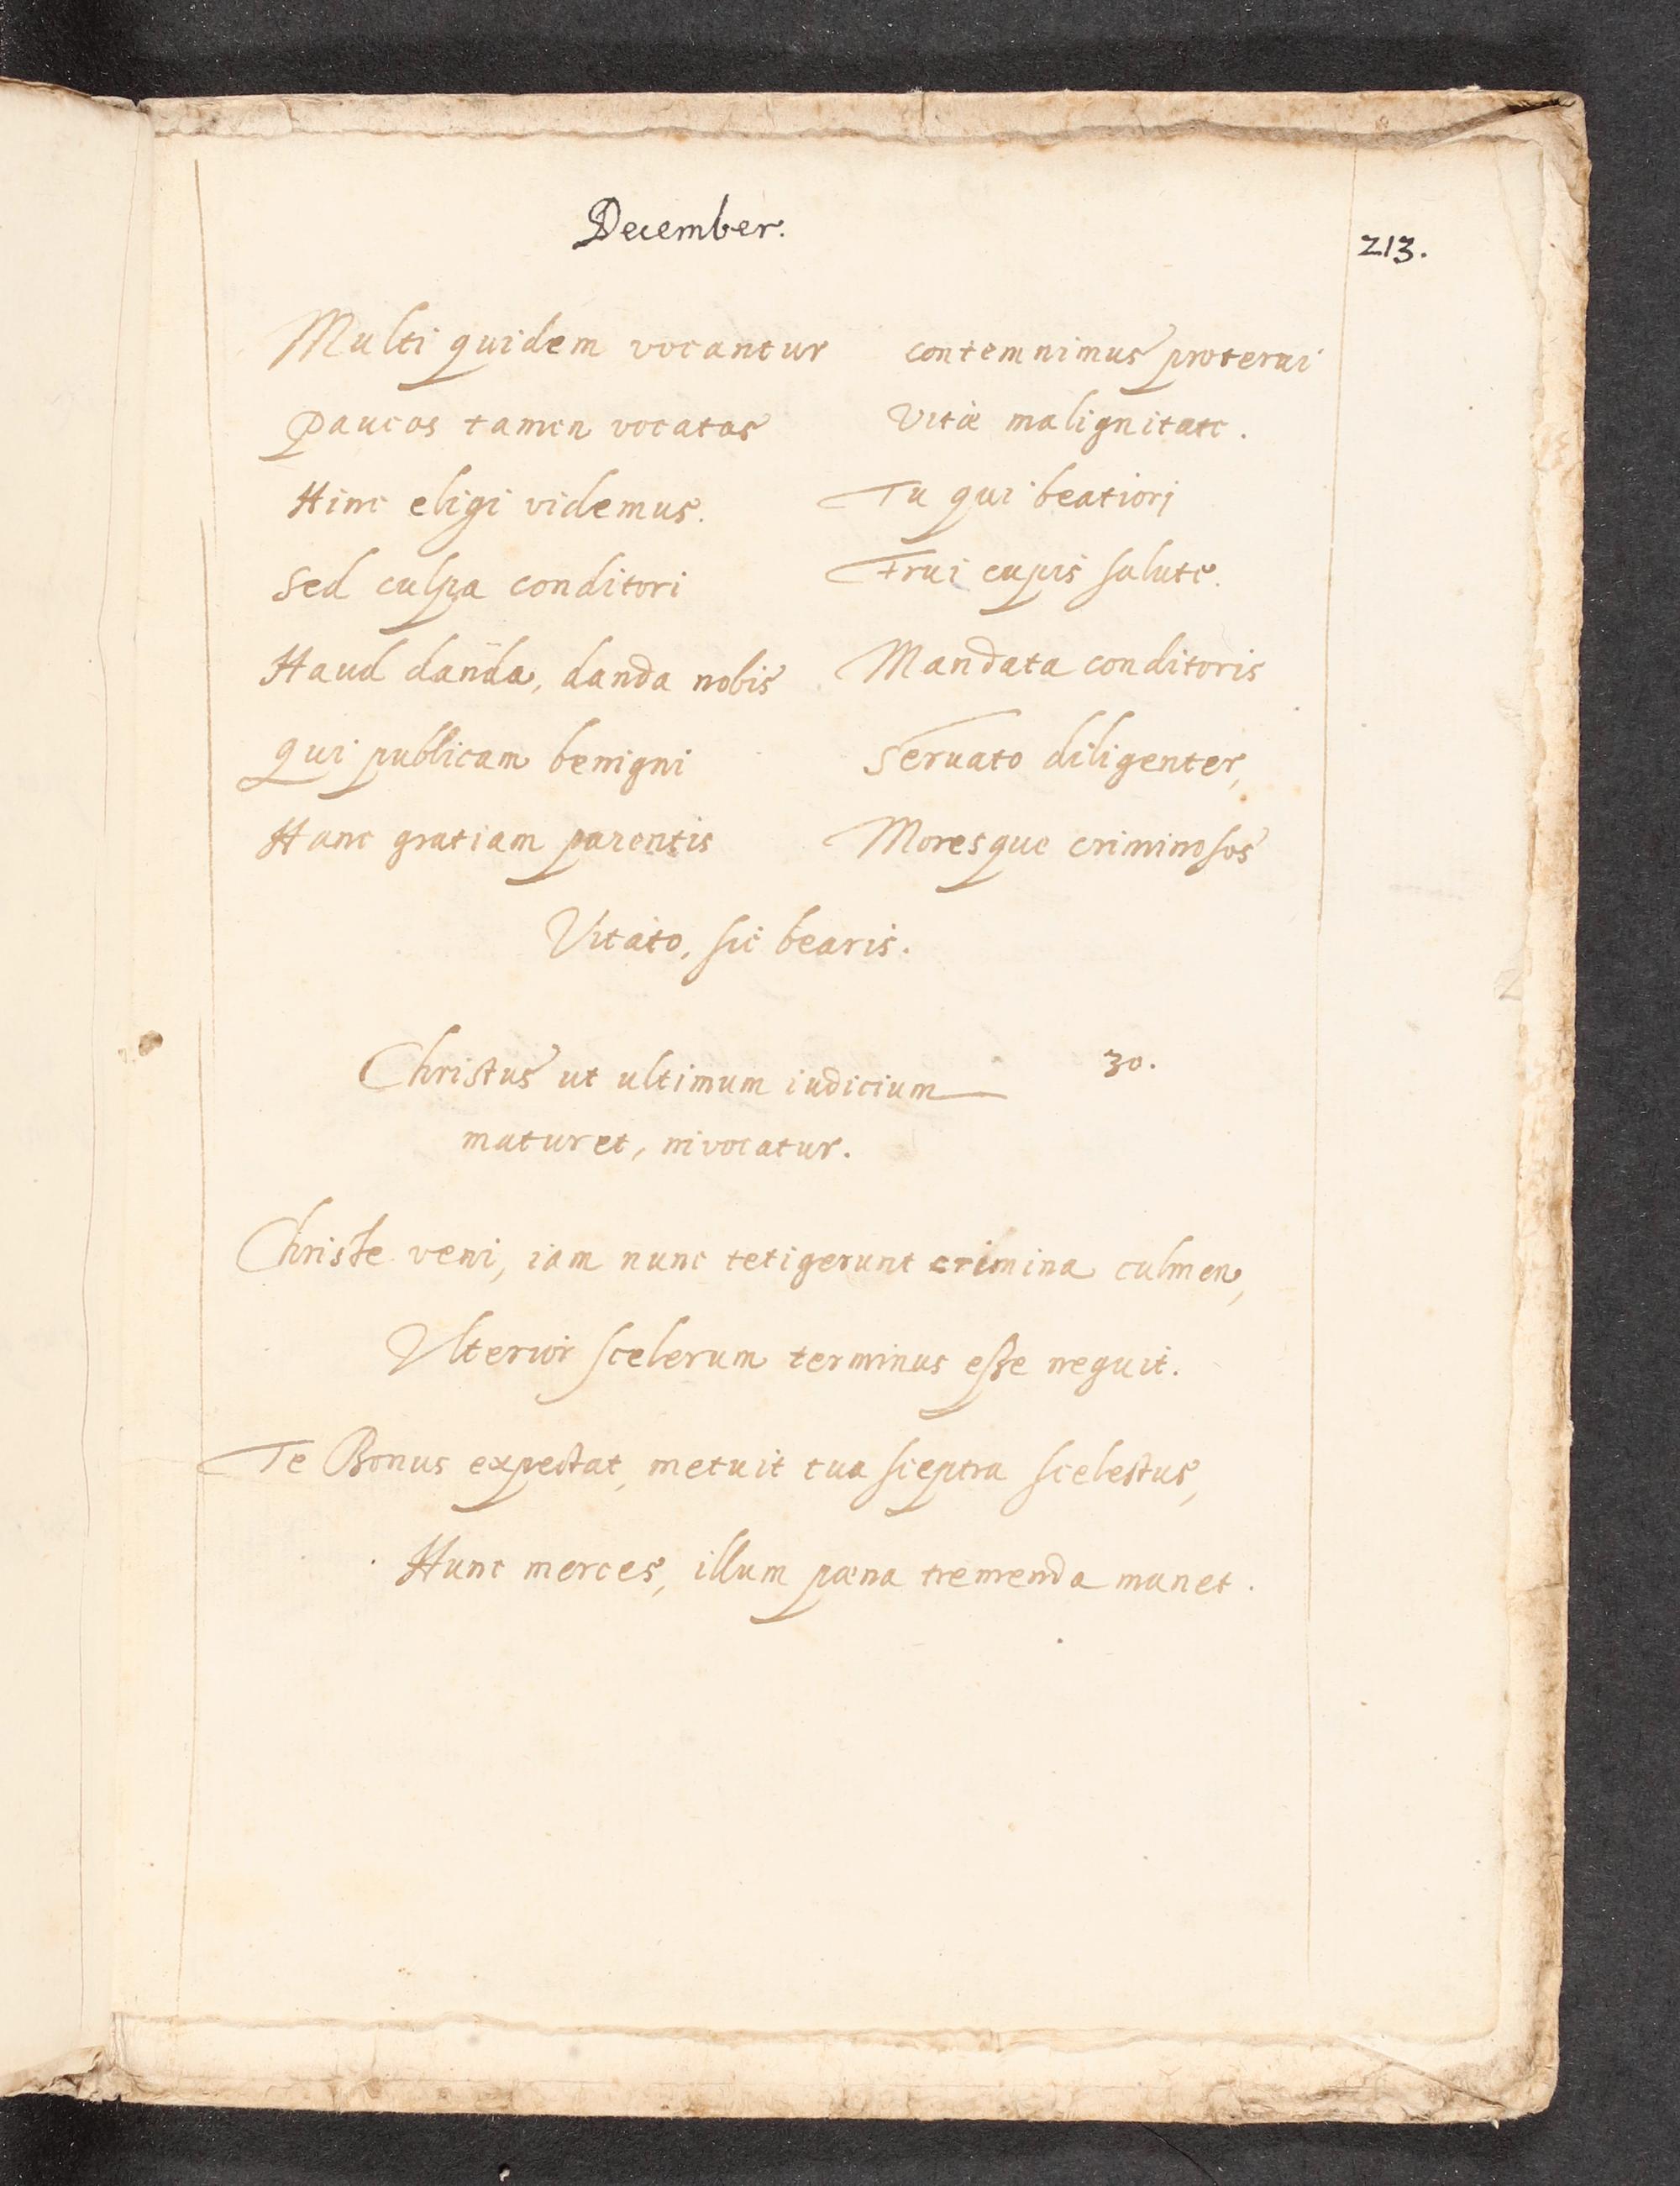 December.
213.
Multi quidem vocantur
Paucos tamen vocatos
Hinc eligi videmus.
Sed culpa conditori
Haud danda, danda nobis
Qui publicam benigni
Hanc gratiam parentis
contemnimus proterui
Vitæ malignitate.
Tu qui beatiori
Frui cupis salute.
Mandata conditoris
Seruato diligenter,
Moresque criminosos
Vitato, sic bearis.
Christus ut ultimum iudicium
30.
maturet, invocatur.
Christe veni, iam nunc tetigerunt crimina culmen,
Ulterior scelerum terminus esse nequit.
Te Bonus expectat, metuit tua sceptra scelestus,
Hunc merces, illum pæna tremenda manet.